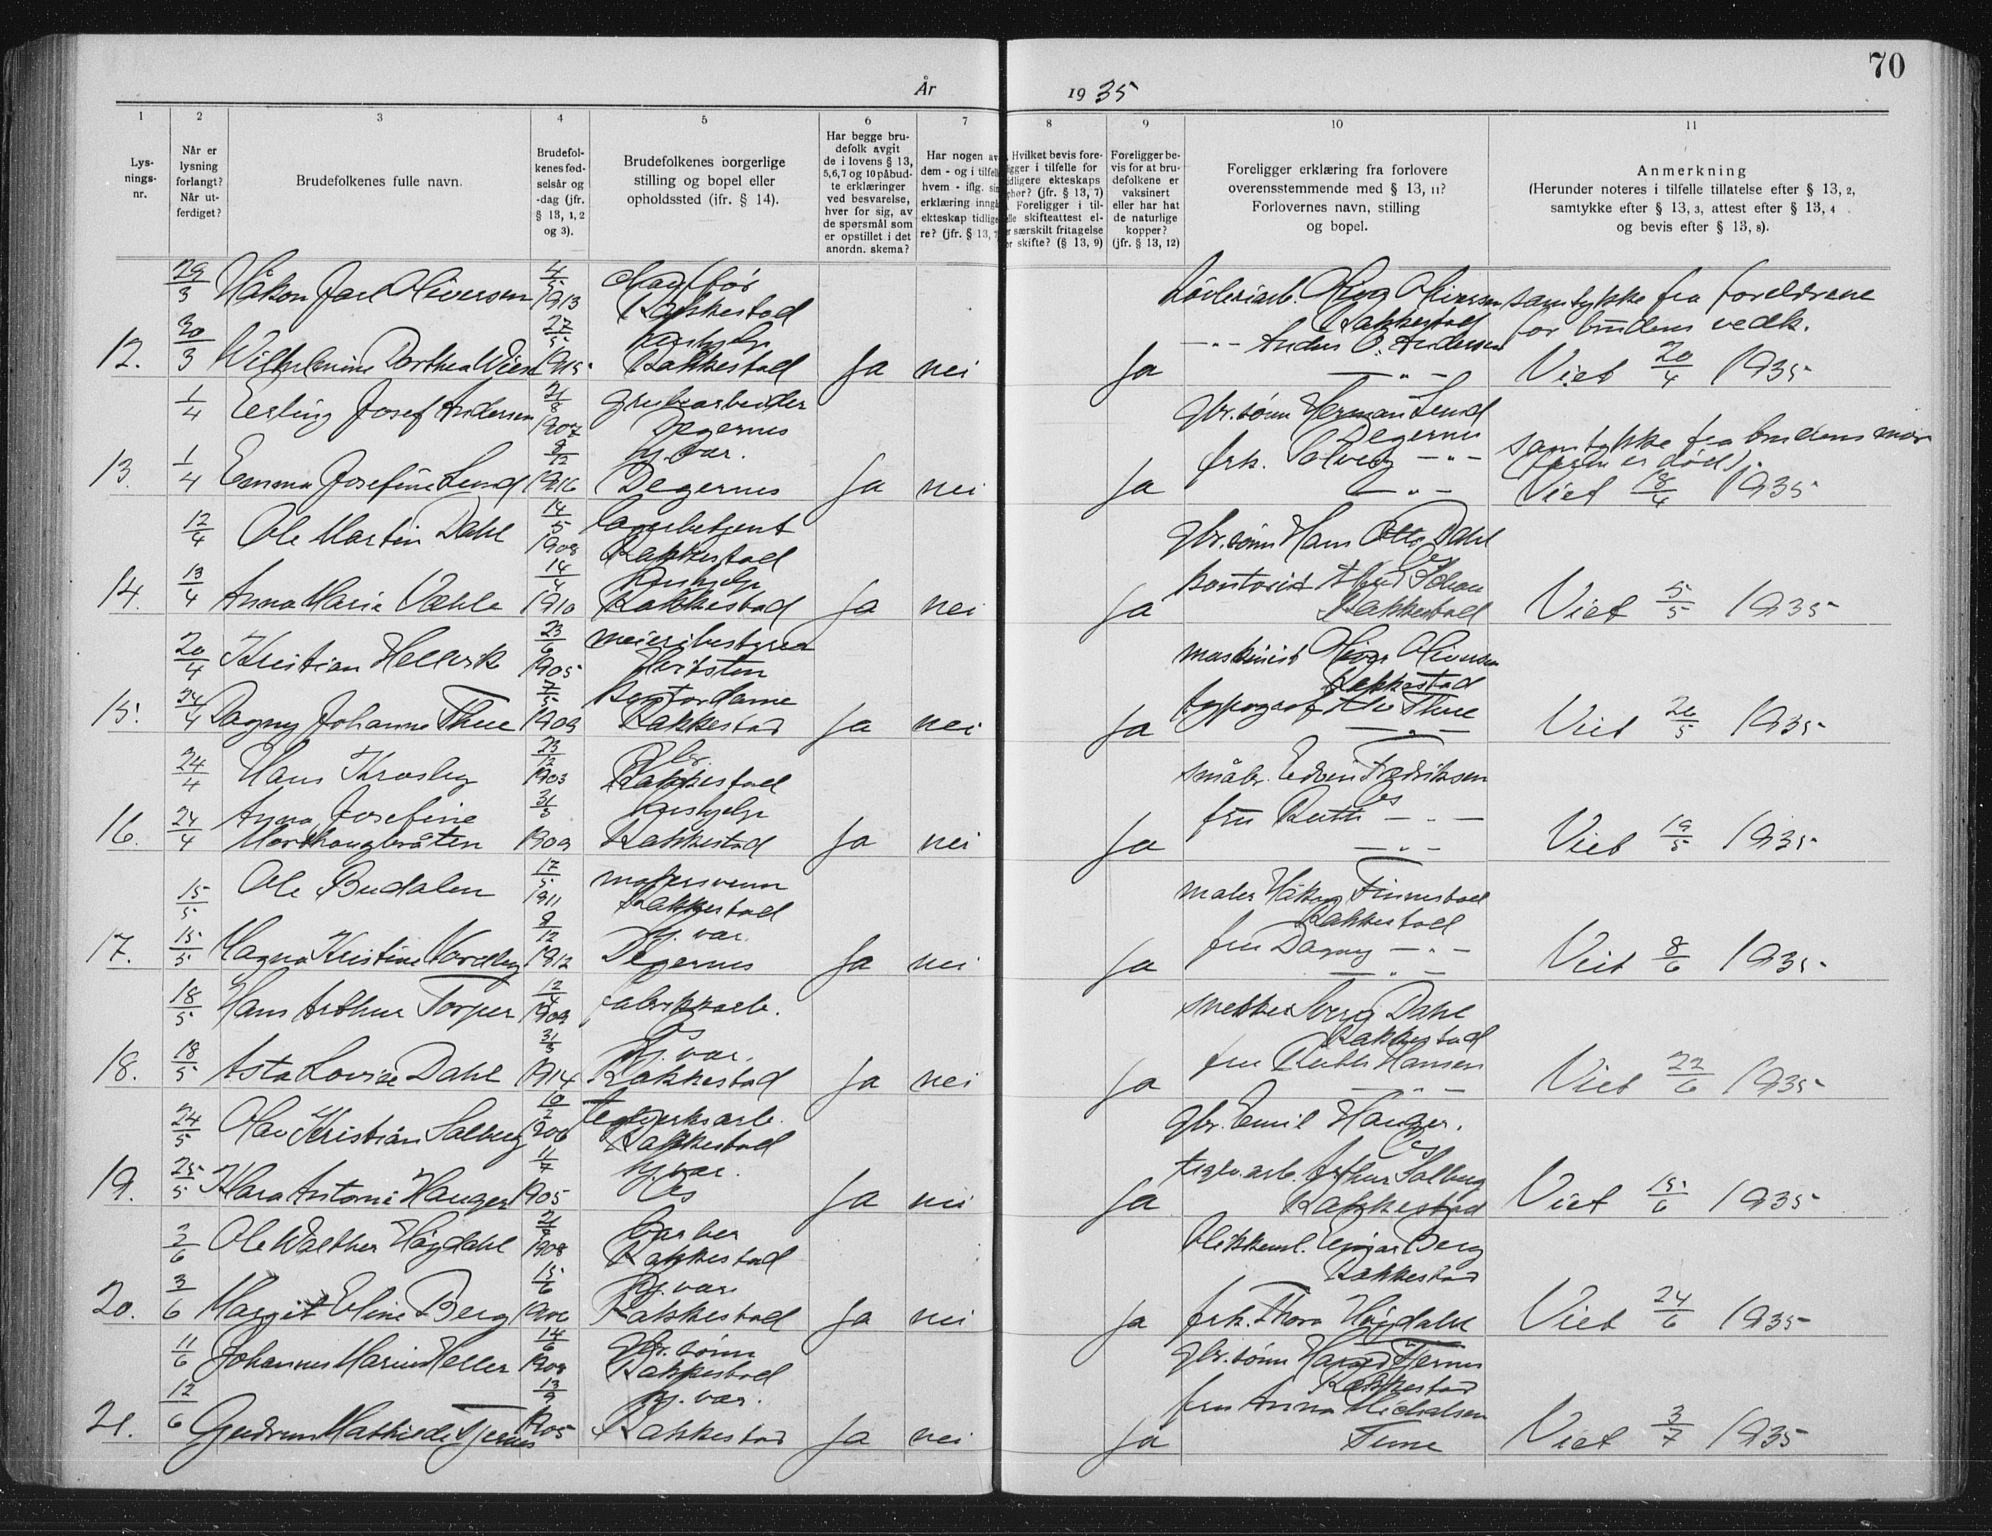 70
År 1935
1 2 3 4 5 6 7 8 9 10 11
Lysningsnr.
Når er lysning forlangt? Når utferdiget?
Brudefolkenes fulle navn.
Brudefolkenes fødselsår og -dag (jfr. § 13, 1, 2 og 3).
Brudefolkenes borgerlige stilling og bopel eller opholdssted (jfr. § 14).
Har begge brudefolk avgit de i lovens § 13, 5, 6, 7 og 10 påbudte erklæringer ved besvarelse, hver for sig, av de spørsmål som er opstillet i det anordn. skema?
Har nogen av dem - og i tilfelle hvem - iflg. sin erklæring inngått ekteskap tidligere? (jfr. § 13, 7
Hvilket bevis foreligger i tilfelle for tidligere ekteskaps ophør? (jfr. § 13, 7) Foreligger i tilfelle skifteattest eller særskilt fritagelse for skifte? (§ 13, 9)
Foreligger bevis for at brudefolkene er vaksinert eller har hat de naturlige kopper? (jfr. § 13, 12)
Foreligger erklæring fra forlovere overensstemmende med § 13, 11? Forlovernes navn, stilling og bopel.
Anmerkning
(Herunder noteres i tilfelle tillatelse efter § 13, 2, samtykke efter § 13, 3, attest efter § 13, 4 og bevis efter § 13, 8).
29/3 Håkon Jarl Oliversen 4/5 1913 Rakkestad Oliversen Rakkestad samtykke fra foreldrene for brudens vedk.
12. 30/3 Wilhelmine Dorthea Wiese 27/5 1915 hushjelp Rakkestad Ja nei Ja Anders O. Andersen — " — Viet 20/4 1935
1/4 Erling Josef Andersen 21/8 1907 grubearbeider Degernes gbr.sønn Herman Lund Degernes samtykke fra brudens mor (faren er død).
13. 1/4 Emma Josefine Lund 9/12 1916 hj.vær. Degernes Ja nei Ja frk. Solveig — " — — " — Viet 18/4 1935
12/4 Ole Martin Dahl 14/5 1908 Rakkestad gbr.sønn Hans Otto Dahl Es
14. 13/4 Anna Marie Vahle 14/4 1910 hushjelp Rakkestad Ja nei Ja kontorist Johan Rakkestad Viet 5/5 1935
20/4 Kristian Hellvik 23/6 1905 meieribestyrer Hvitsten maskinist Oliversen Rakkestad
15. 24/4 Dagny Johanne Thue 7/5 1909 kontordame Rakkestad Ja nei Ja typograf Thue — " — Viet 26/5 1935
24/4 Hans Krosby 23/12 1903 gbr. Rakkestad småbr. Edvin Fredriksen Es
16. 24/4 Anna Josefine Morthaugbråten 31/3 1909 hushjelp Rakkestad Ja nei Ja fru Ruth — " — — " — Viet 19/5 1935
15/5 Ole Budalen 17/5 1911 malersvenn Rakkestad maler Håkon Finnestad Rakkestad
17. 15/5 Magna Kristine Nordby 9/12 1912 hj.vær. Degernes Ja nei Ja fru Dagny — " — — " — Viet 8/6 1935
18/5 Hans Arthur Torper 12/4 1909 fabrikkarb. Es snekker Dahl Rakkestad
18. 18/5 Asta Lovise Dahl 31/3 1914 hj.vær. Rakkestad Ja nei Ja fru Ruth Hansen — " — Viet 22/6 1935
24/5 Olav Kristian Solberg 10/2 1906 Teglverksarb. Rakkestad gbr. Emil Hauger. Es
19. 25/5 Klara Antonie Hauger 11/7 1905 hj.vær. Es Ja nei Ja teglv.arb. Arthur Solberg Rakkestad Viet 15/6 1935
3/6 Ole Walther Høgdahl 1908 Garver Rakkestad blikkensl. Einar Berg Rakkestad
20. 3/6 Margit Eline Berg 15/6 1906 hj.vær. Rakkestad Ja nei Ja frk. Thora Høgdahl Viet 24/6 1935
11/6 Johannes Marius Heller 14/6 1909 gbr.sønn Rakkestad gbr.sønn Harald Tjernes Rakkestad
21. 12/6 Gudrun Mathilde Tjernes 13/9 1905 hj.vær. Rakkestad Ja nei Ja fru Anna Michalsen Tune Viet 3/7 1935